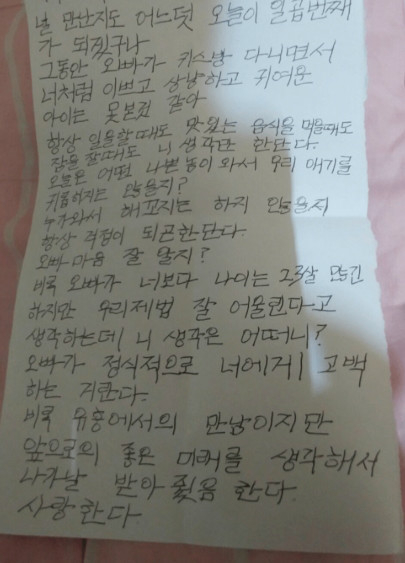 널 만난지도 어느덧 오늘이 일곱번째
가 되겠구나
그동안 오빠가 키스방 다니면서
너처럼 이쁘고 상냥하고 귀여운
아이는 못본것 같아
항상 일을할때도 맛있는 음식을 먹을때도
잠을 잘때도 니 생각만 한단다.
오늘은 어떤 나쁜놈이 와서 우리 애기를
괴롭히지는 않을지?
누가와서 해꼬지는 하지 않을지
항상 걱정이 되곤한단다.
오빠 마음 잘 알지?
비록 오빠가 너보다 나이는 23살 많긴
하지만 우리제법 잘 어울린다고
생각하는데 니 생각은 어떠니?
오빠가 정식적으로 너에게 고백
하는 거란다.
비록 유흥에서의 만남이지만
앞으로의 좋은 미래를 생각해서
나가날 받아줬음 한다.
사랑한다